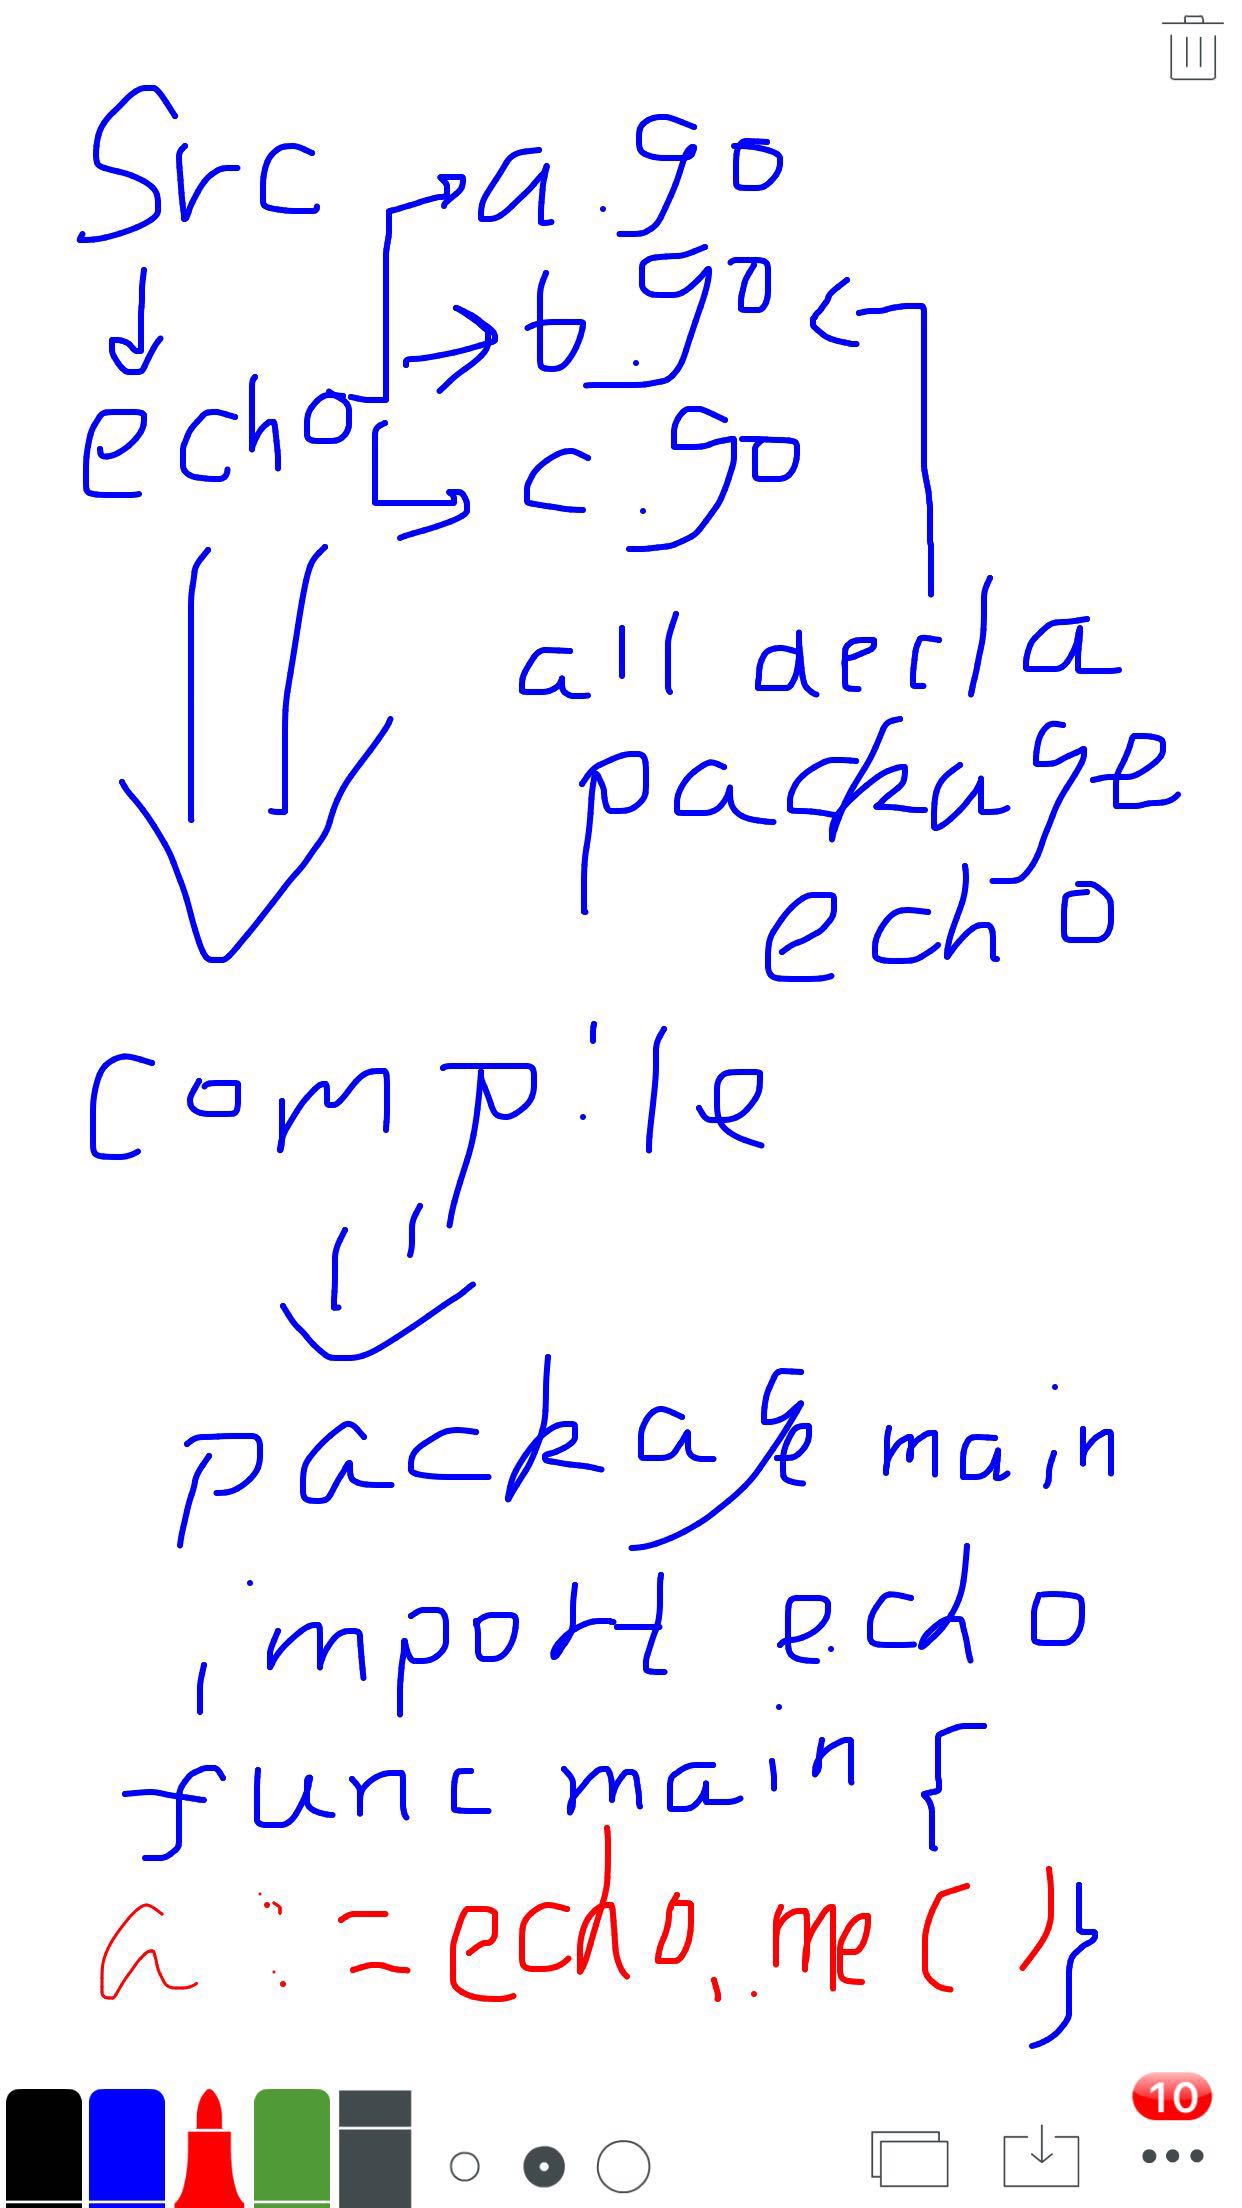 Src
a.go
b.go
echo
c.go
all decla
package
echo
compile
package main
import echo
func main {
a := echo.me()}
10